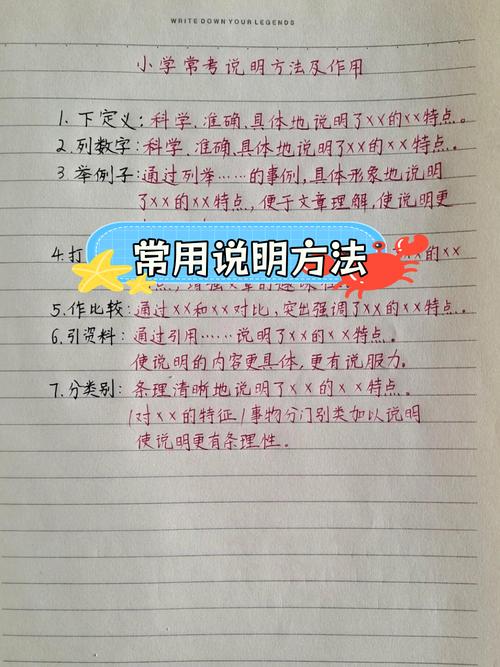 WRITE DOWN YOUR LEGENDS
小学常考说明方法及作用
1. 下定义：科学、准确、具体地说明了××的××特点。
2. 列数字：科学、准确、具体地说明了××的××特点。
3 举例子：通过列举……的事例，具体形象地说明
了××的××特点，便于文章理解，使说明更
4. 打
的××
常用说明方法
5. 作比较：通过××和××对比，突出强调了××的××特点。
6. 引资料：通过引用……说明了××的××特点。
使说明的内容更具体，更有说服力。
7. 分类别：条理清晰地说明了××的××特点。
/对××的特征/事物分门别类加以说明
使说明更有条理性。